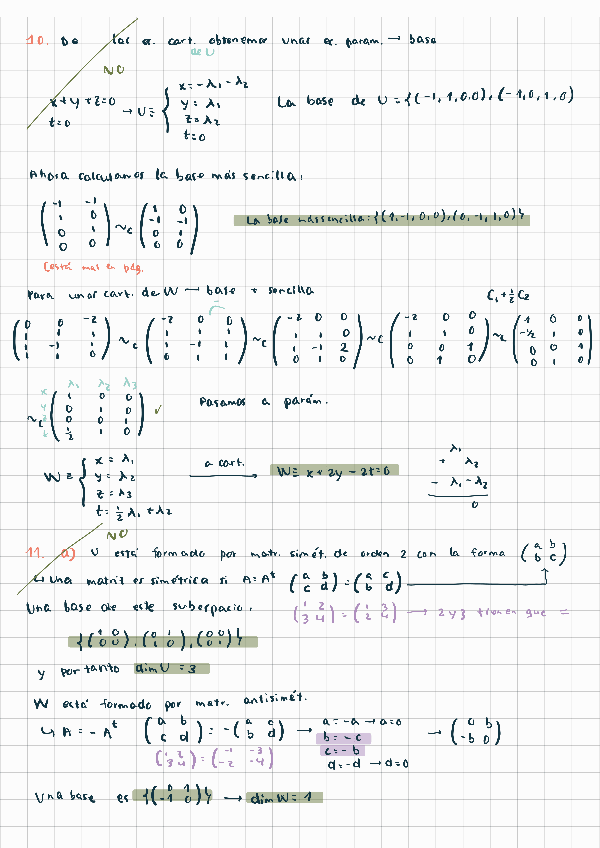 10. De las ec. cart. obtenemos unas ec. param. → base
de U
NO
x+y+z=0
t=0
→ U ≡ { x = -λ₁ - λ₂
y = λ₁
z = λ₂
t = 0
La base de U = {(-1,1,0,0), (-1,0,1,0)
Ahora calculamos la base más sencilla:
( -1 -1
1 0
0 1
0 0 ) ~c ( 1 0
-1 -1
0 1
0 0 )
La base más sencilla: {(1,-1,0,0), (0,-1,1,0)}
Para unas cart. de W → base + sencilla
C₁ + ½ C₂
( 0 0 -2
1 1 1
1 -1 1
1 1 1 ) ~c ( -2 0 0
1 1 1
1 -1 1
1 1 1 ) ~c ( -2 0 0
1 1 0
1 -1 2
1 1 0 ) ~c ( -2 0 0
1 1 0
0 0 1
0 1 0 ) ~c ( 1 0 0
-½ 1 0
0 0 1
0 1 0 )
λ₁ λ₂ λ₃
~c x y z t ( 1 0 0
0 1 0
0 0 1
½ 1 0 ) ✓
Pasamos a parám.
W ≡ { x = λ₁
y = λ₂
z = λ₃
t = ½ λ₁ + λ₂
a cart.
W ≡ x + 2y - 2t = 0
λ₁
+ λ₂
- λ₁ - λ₂
0
NO
11. a) U está formado por matr. simét. de orden 2 con la forma ( a b
b c )
↳ Una matriz es simétrica si A = Aᵗ ( a b
c d ) = ( a c
b d )
Una base de este suberpacio:
( 1 2
3 4 ) = ( 1 3
2 4 ) → 2 y 3 tienen que =
{( 1 0
0 0 ), ( 0 1
1 0 ), ( 0 0
0 1 )}
y por tanto dim U = 3
W está formado por matr. antisimét.
↳ A = - Aᵗ ( a b
c d ) = - ( a c
b d ) → a = -a → a = 0
b = -c
c = -b
d = -d → d = 0
→ ( 0 b
-b 0 )
( 1 2
3 4 ) = ( -1 -3
-2 -4 )
Una base es {( 0 1
-1 0 )} → dim W = 1